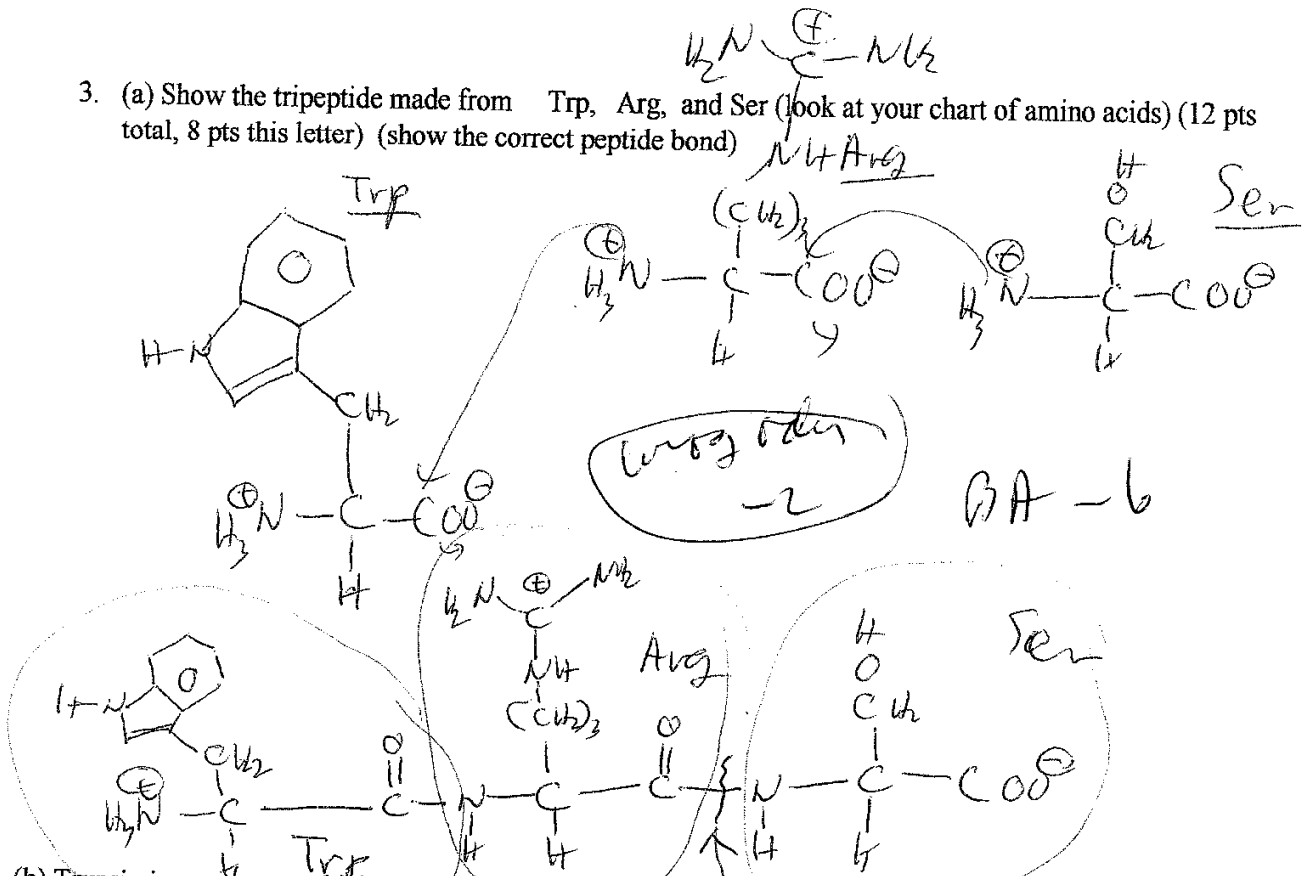 H₂N ⊕ C – NH₂
3. (a) Show the tripeptide made from Trp, Arg, and Ser (look at your chart of amino acids) (12 pts
total, 8 pts this letter) (show the correct peptide bond)
NH Arg
Trp
(CH₂)₃
H
O
CH₂
Ser
⊕
H₃N – C – COO⊖
H
⊕
H₃N – C – COO⊖
H
H–N
CH₂
⊕
H₃N – C – COO⊖
H
wrong order
-2
BA -6
H₂N ⊕ C NH₂
NH
(CH₂)₃
Arg
H
O
CH₂
Ser
H–N
CH₂
⊕
H₃N – C – C – N – C – C – N – C – COO⊖
O O
H H H H H
Trp
(b)